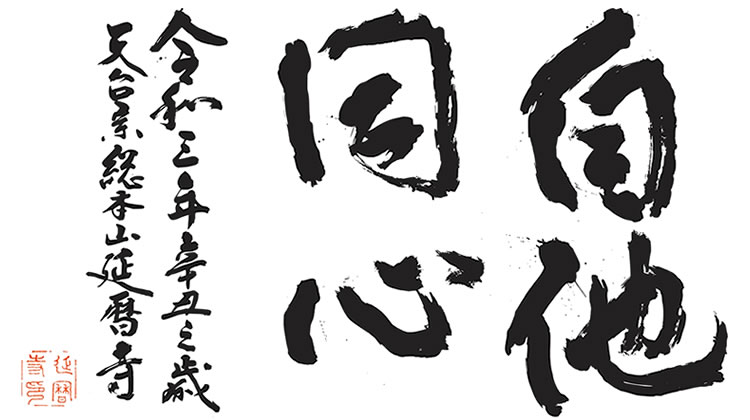 自他
同心
令和三年辛丑之歳
天台宗総本山延暦寺
延暦
寺印